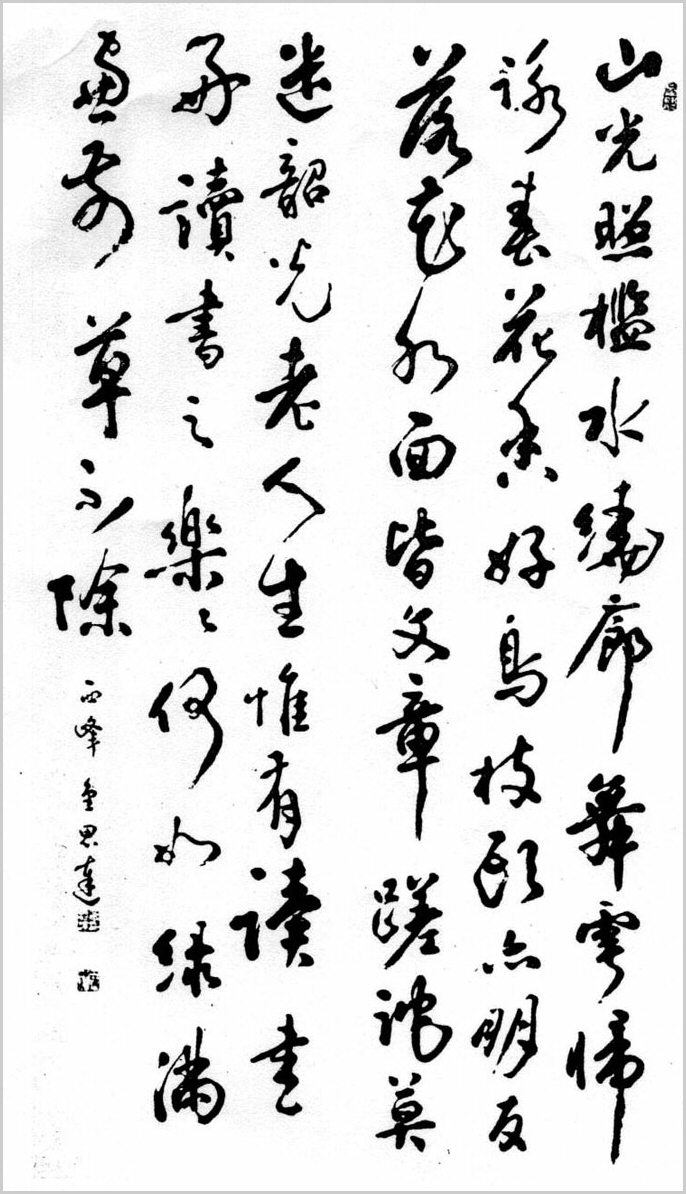 山光照檻水繞廊舞雩歸
詠春花香好鳥枝頭亦朋友
落花水面皆文章蹉跎莫
遣韶光老人生惟有讀書
好讀書之樂々何如綠滿
窗前草不除
西峰金思達